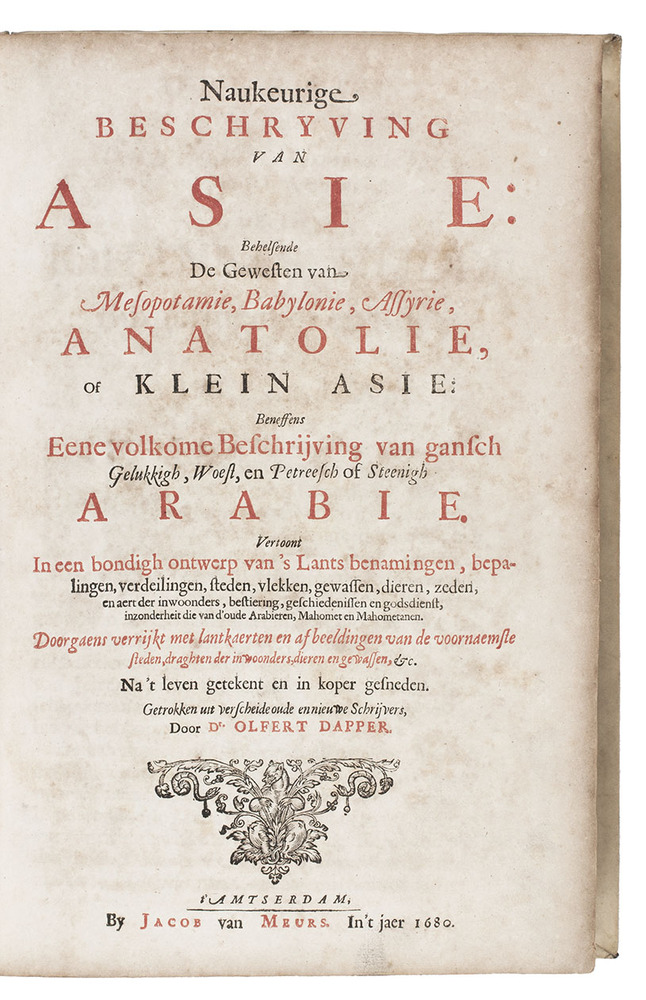 Naukeurige
BESCHRYVING
VAN
ASIE:
Behelſende
De Geweſten van
Meſopotamie, Babylonie, Aſſyrie,
ANATOLIE,
OF KLEIN ASIE:
Beneffens
Eene volkome Beſchrijving van ganſch
Gelukkigh, Woeſt, en Petreeſch of Steenigh
ARABIE.
Vertoont
In een bondigh ontwerp van 's Lants benamingen, bepa-
lingen, verdeilingen, ſteden, vlekken, gewaſſen, dieren, zeden,
en aert der inwoonders, beſtiering, geſchiedeniſſen en godsdienſt,
inzonderheit die van d'oude Arabieren, Mahomet en Mahometanen.
Doorgaens verrijkt met lantkaerten en afbeeldingen van de voornaemſte
ſteden, draghten der inwoonders, dieren en gewaſſen, &c.
Na 't leven getekent en in koper geſneden.
Getrokken uit verſcheide oude en nieuwe Schrijvers,
Door Dr. OLFERT DAPPER.
t'AMTSERDAM,
By JACOB van MEURS. In't jaer 1680.